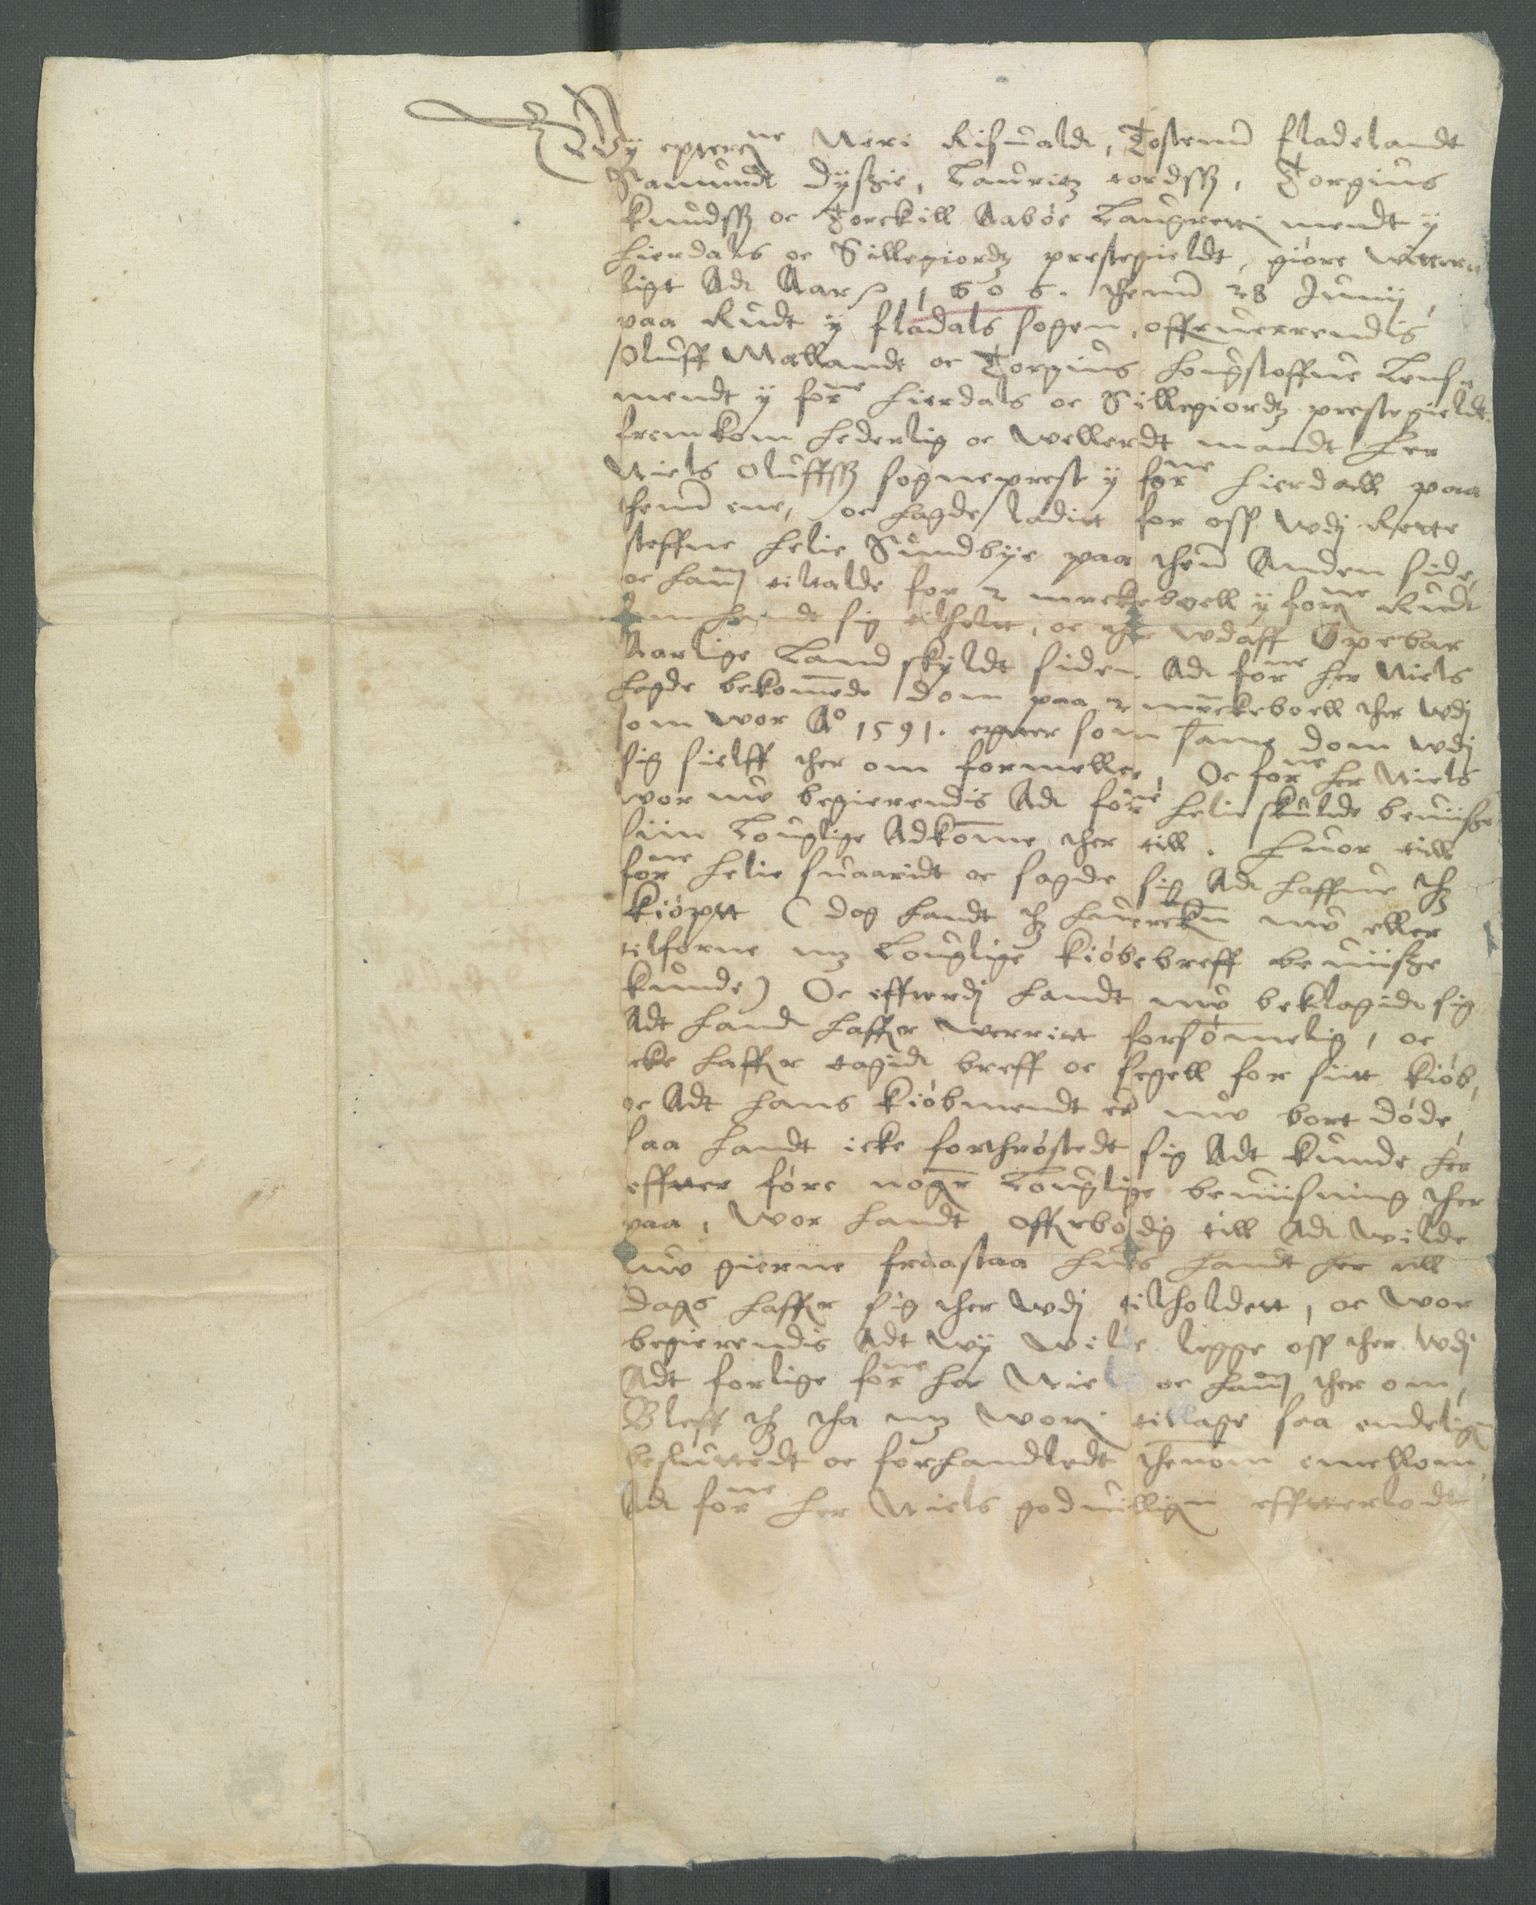 Wÿ epterne Neri Risualdt, Tostenn fladelandt
Samundt Dÿszie, Lauritz tordssz, Torgius
knudssz oc Torckill Aabøe Laugretis mendt ÿ
Hierdals oc Sillegiordz prestegieldt, giøre witter
ligt Adt Aar 1606. thenn 28 Junij,
paa Rudt ÿ fladals sogen, offruerrendis
Oluff Mællandt oc Torgius Hougstoffue Lens
mendt ÿ forne Hierdals oc Sillegiordz prestegieldt
fremkom Hederlig oc wellerdt mandt Her
Niels Oluffssz sogneprest ÿ forne Hierdall paa
thenn ene, oc hagde ladit for oss wdj Rette
steffne Helie Sundbÿe paa thenn Anden side,
oc hannem tiltalde for 2 mrckeboell ÿ forne Rudt
som handt sig tilholt, oc ther wdaff Opebar
Aarlige Landskÿldt siden Adt forne her Niels
hagde bekommede dom paa 2 mrckeboell ther wdj
som wor Ao 1591. epter som samme dom wdj
sig sielff ther om formeller, Oc forne her Niels
wor nw begierendis Adt forne Helie skulde beuiisze
siin Louglige Adkomme ther till. Huor till
forne Helie suaaridt oc sagde sig Adt haffue thz
kiøptt (dog handt thz huercken nw eller
tilforne mz Louglige kiøbebreff beuiisze
kunde) Oc effterdj handt nw beklagide sig
Adt handt haffer werritt forsømmelig, oc
icke haffer tagidt breff oc segell for siitt kiøb,
oc Adt hans kiøbmendt er nw bort døde,
saa handt icke forthrøstedt sig Adt kunde her
effter føre nogen Louglige beuiisning ther
paa, wor handt offuerbødig till Adt wilde
nw gierne fraastaa huis handt her till
dags haffer sig ther wdj tilholdett, oc wor
begierendis Adt wÿ wilde legge oss ther wdj
Adt forlige forne her Niels oc hannem ther om,
Bleff thz tha mz wori tillage saa endeligen
besluttedt oc forhandledt thennom emellom,
Adt forne her Niels goduilligen effterlodt